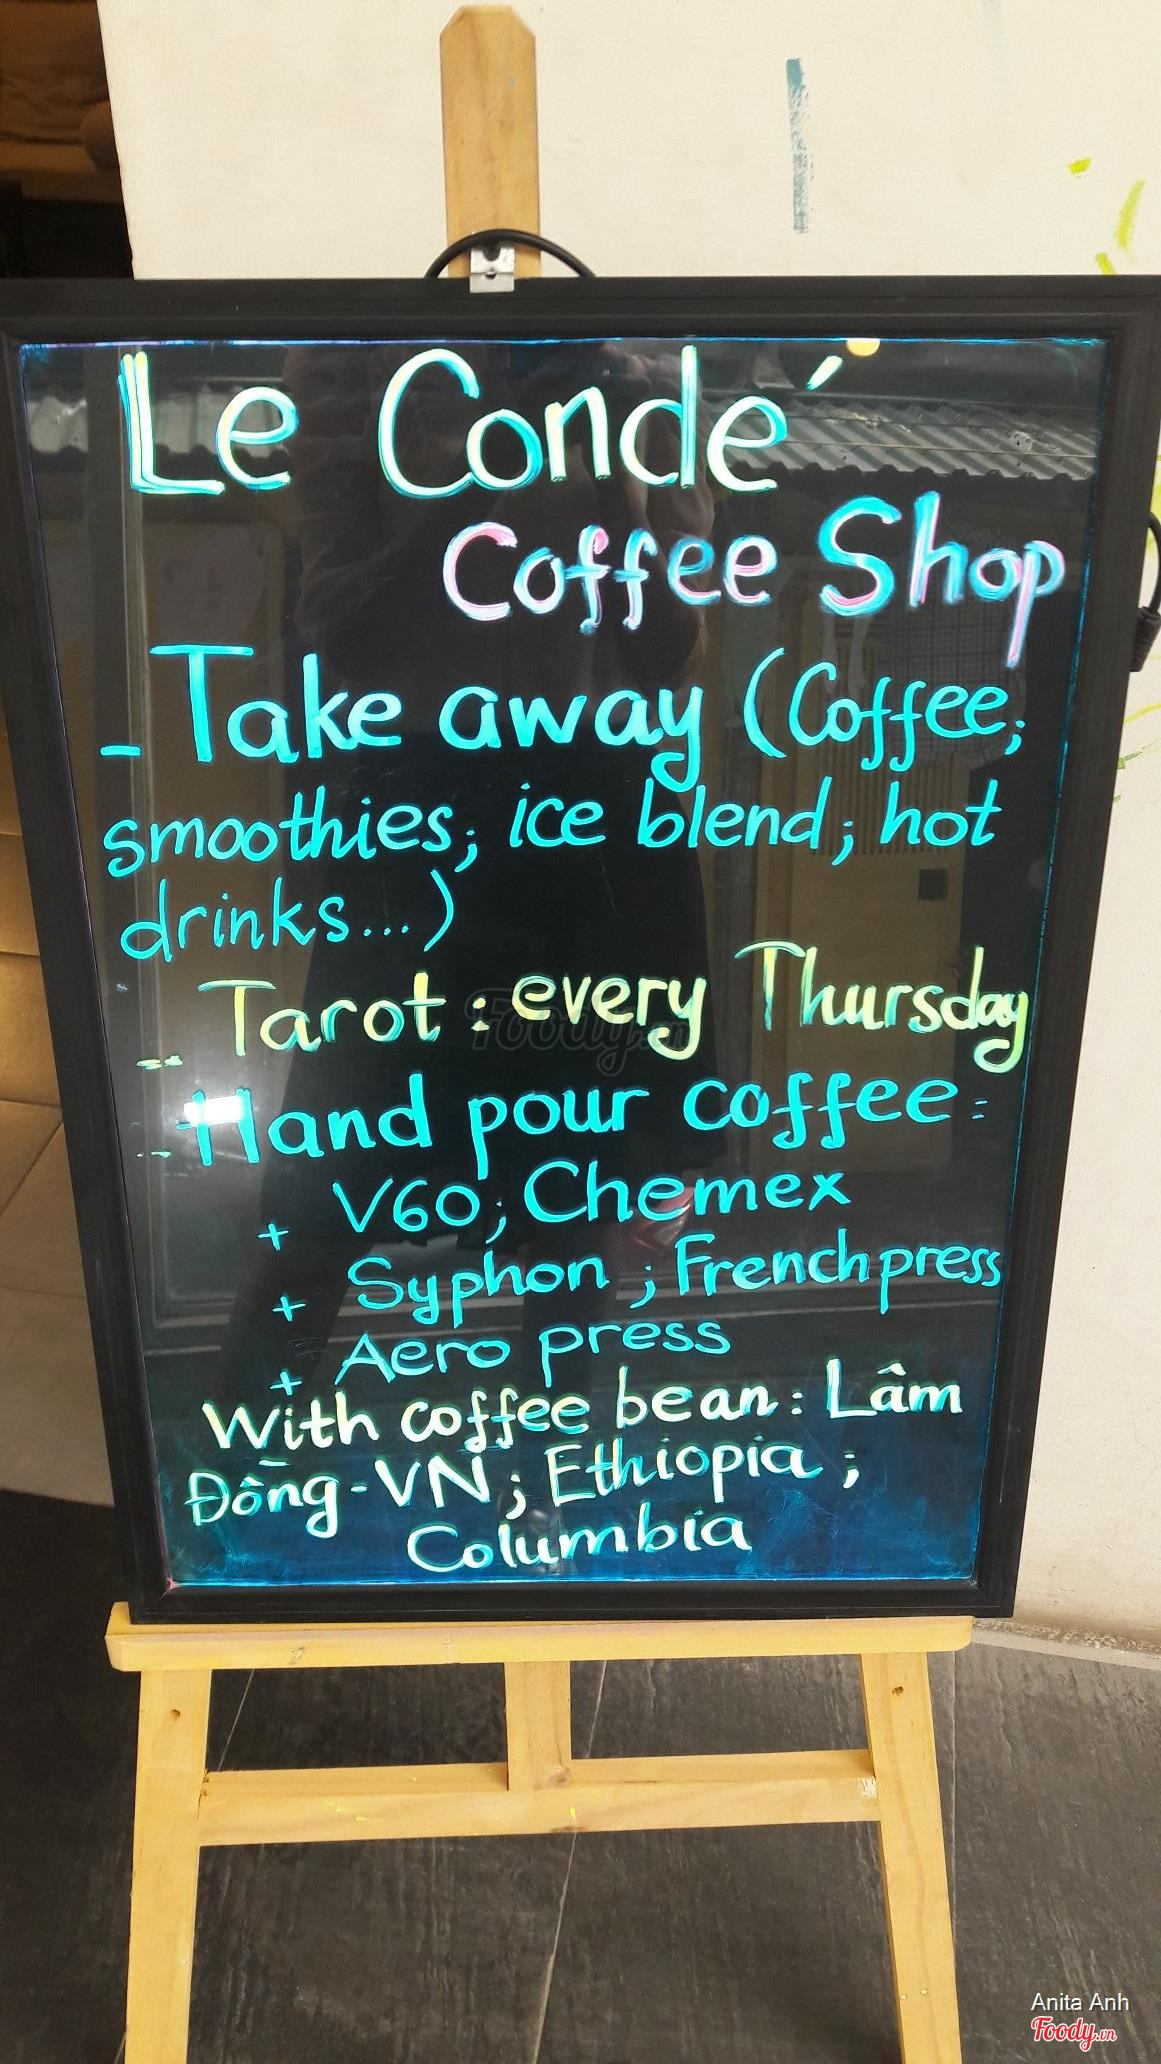 Le Condé
Coffee Shop
- Take away (Coffee;
smoothies; ice blend; hot
drinks...)
-- Tarot : every Thursday
-- Hand pour coffee:
+ V60; Chemex
+ Syphon ; French press
+ Aero press
With coffee bean : Lâm
Đồng - VN ; Ethiopia ;
Columbia
Foody.vn
Anita Anh
Foody.vn